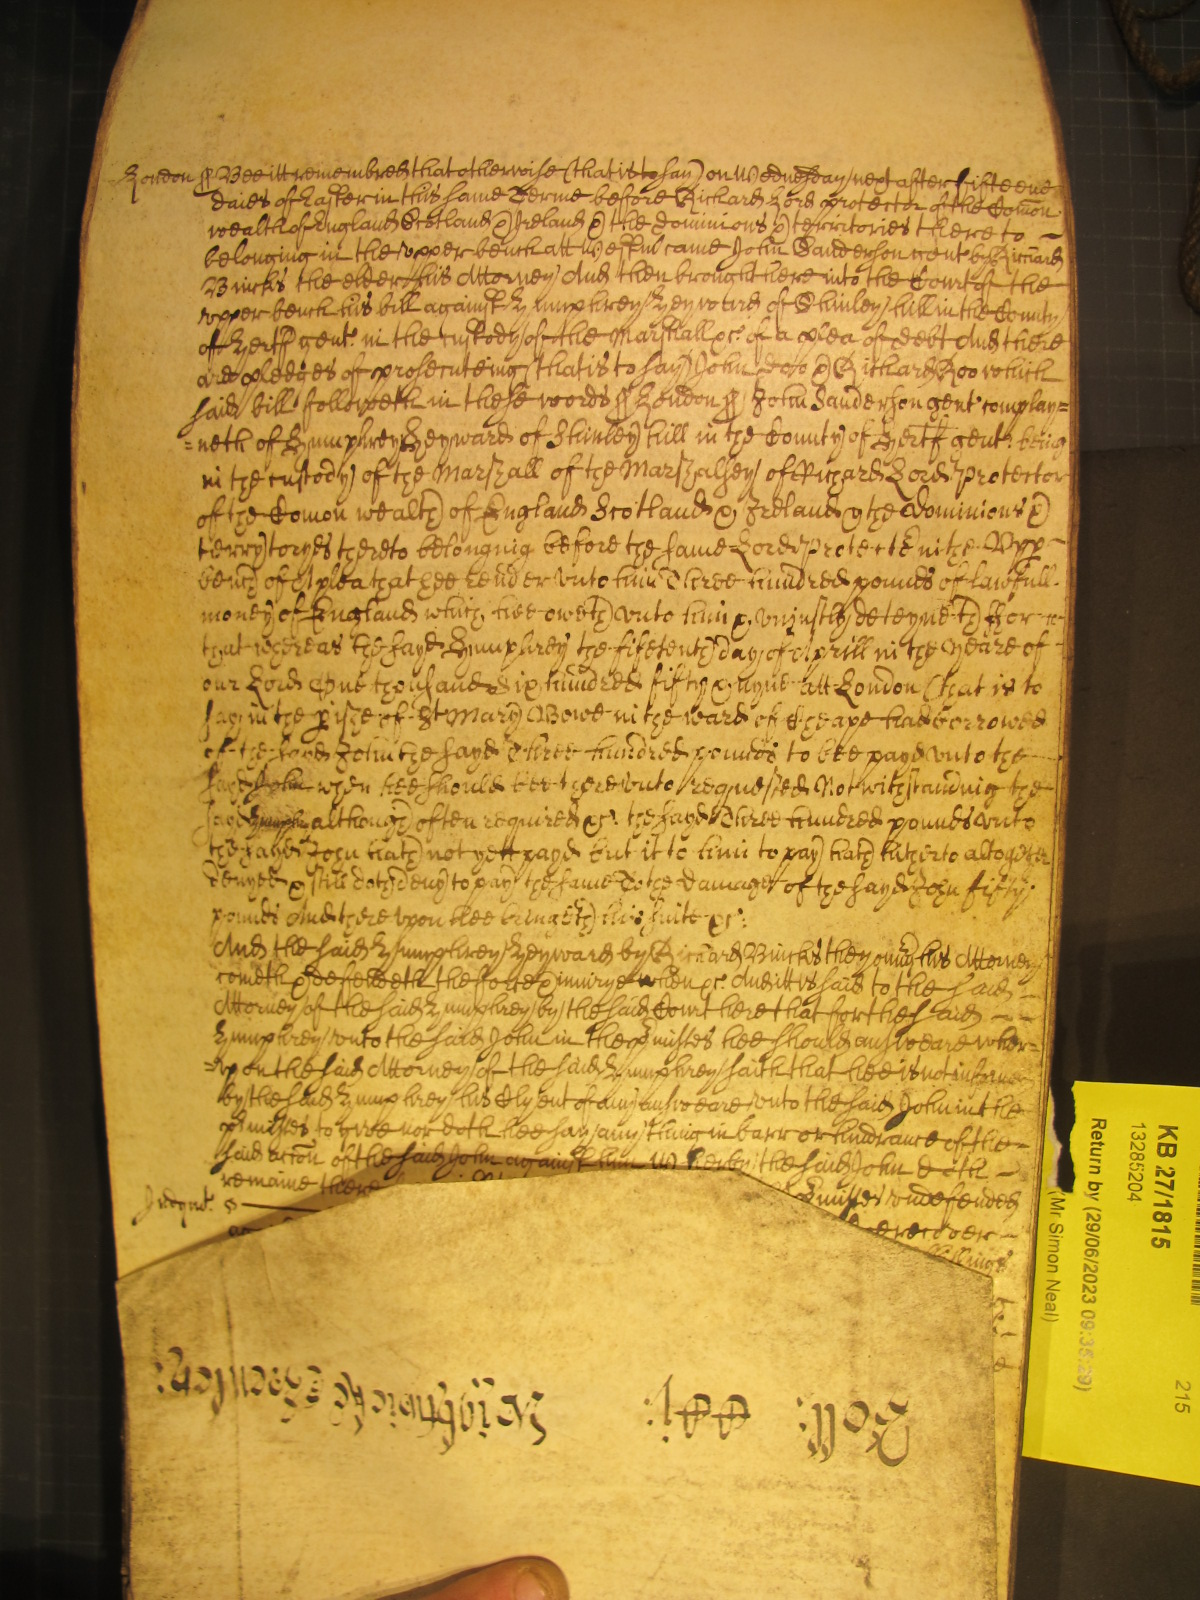 London ss Bee itt remembred that otherwise (that is to say) on Wednesday next after fifteene
daies of Easter in this same Terme before Richard Lord protector of the Comon
wealth of England Scotland & Ireland & the dominions & territories there to
belonging in the upper bench att Westm came John Sanderson gent by Richard
Bucks the elder his Attorney And then brought here into the Court of the
upper bench his bill against Humphrey Heyward of Shinley hill in the County
of Hertf gent. in the custody of the Marshall &c. of a plea of debt And there
are pledges of prosecuteing (that is to say) John Doo & Richard Roo which
said bill followeth in these words ss London ss John Sanderson gent complay=
=neth of Humphrey Heyward of Shinley hill in the County of Hertf gent. being
in the custody of the Marshall of the Marshalsey of Richard Lord Protector
of the Comon wealth of England Scotland & Ireland & the Dominions &
terrytoryes thereto belonging before the same Lord Protector in the Upp
bench of A plea that hee render unto him Three hundred pounds of lawfull
money of England which hee oweth unto him & uniustly deteyneth For
that whereas the sayd Humphrey the fifetenth day of Aprill in the yeare of
our Lord One thousand Six hundred fifty & nyne att London (that is to
say in the pishe of St Mary Bowe in the ward of Cheape had borrowed
of the sayd John the sayd Three hundred pounds to bee payd unto the
sayd John when hee should bee thereunto requested Notwithstanding the
sayd Humphr although often required &c. the sayd Three hundred pounds unto
the sayd John hath not yett payd but it to him to pay hath hitherto altogether
denyed & still doth deny to pay the same To the damage of the sayd John fifty
pounds And thereupon hee bringeth his suite &c:
And the said Humphrey Heyward by Richard Bucks the youngr his Attorney
cometh & defendeth the force & iniurye when &c. And itt is said to the said
Attorney of the said Humphrey by the said Court here that for the said
Humphrey unto the said John in the pmisses hee should answeare wher=
=upon the said Attorney of the said Humphrey saith that hee is not informed
by the said Humphrey his Clyent of any answeare unto the said John in the
pmisses to give nor doth hee say any thing in barr or hindrance of the
said accon of the said John against him Wherby the said John doth
remaine there pmisses undefended
Judgmt. recover
shillings
Roll:
KB 27/1815
13285204
Return by (29/06/2023 09:35:29)
(Mr Simon Neal)
215